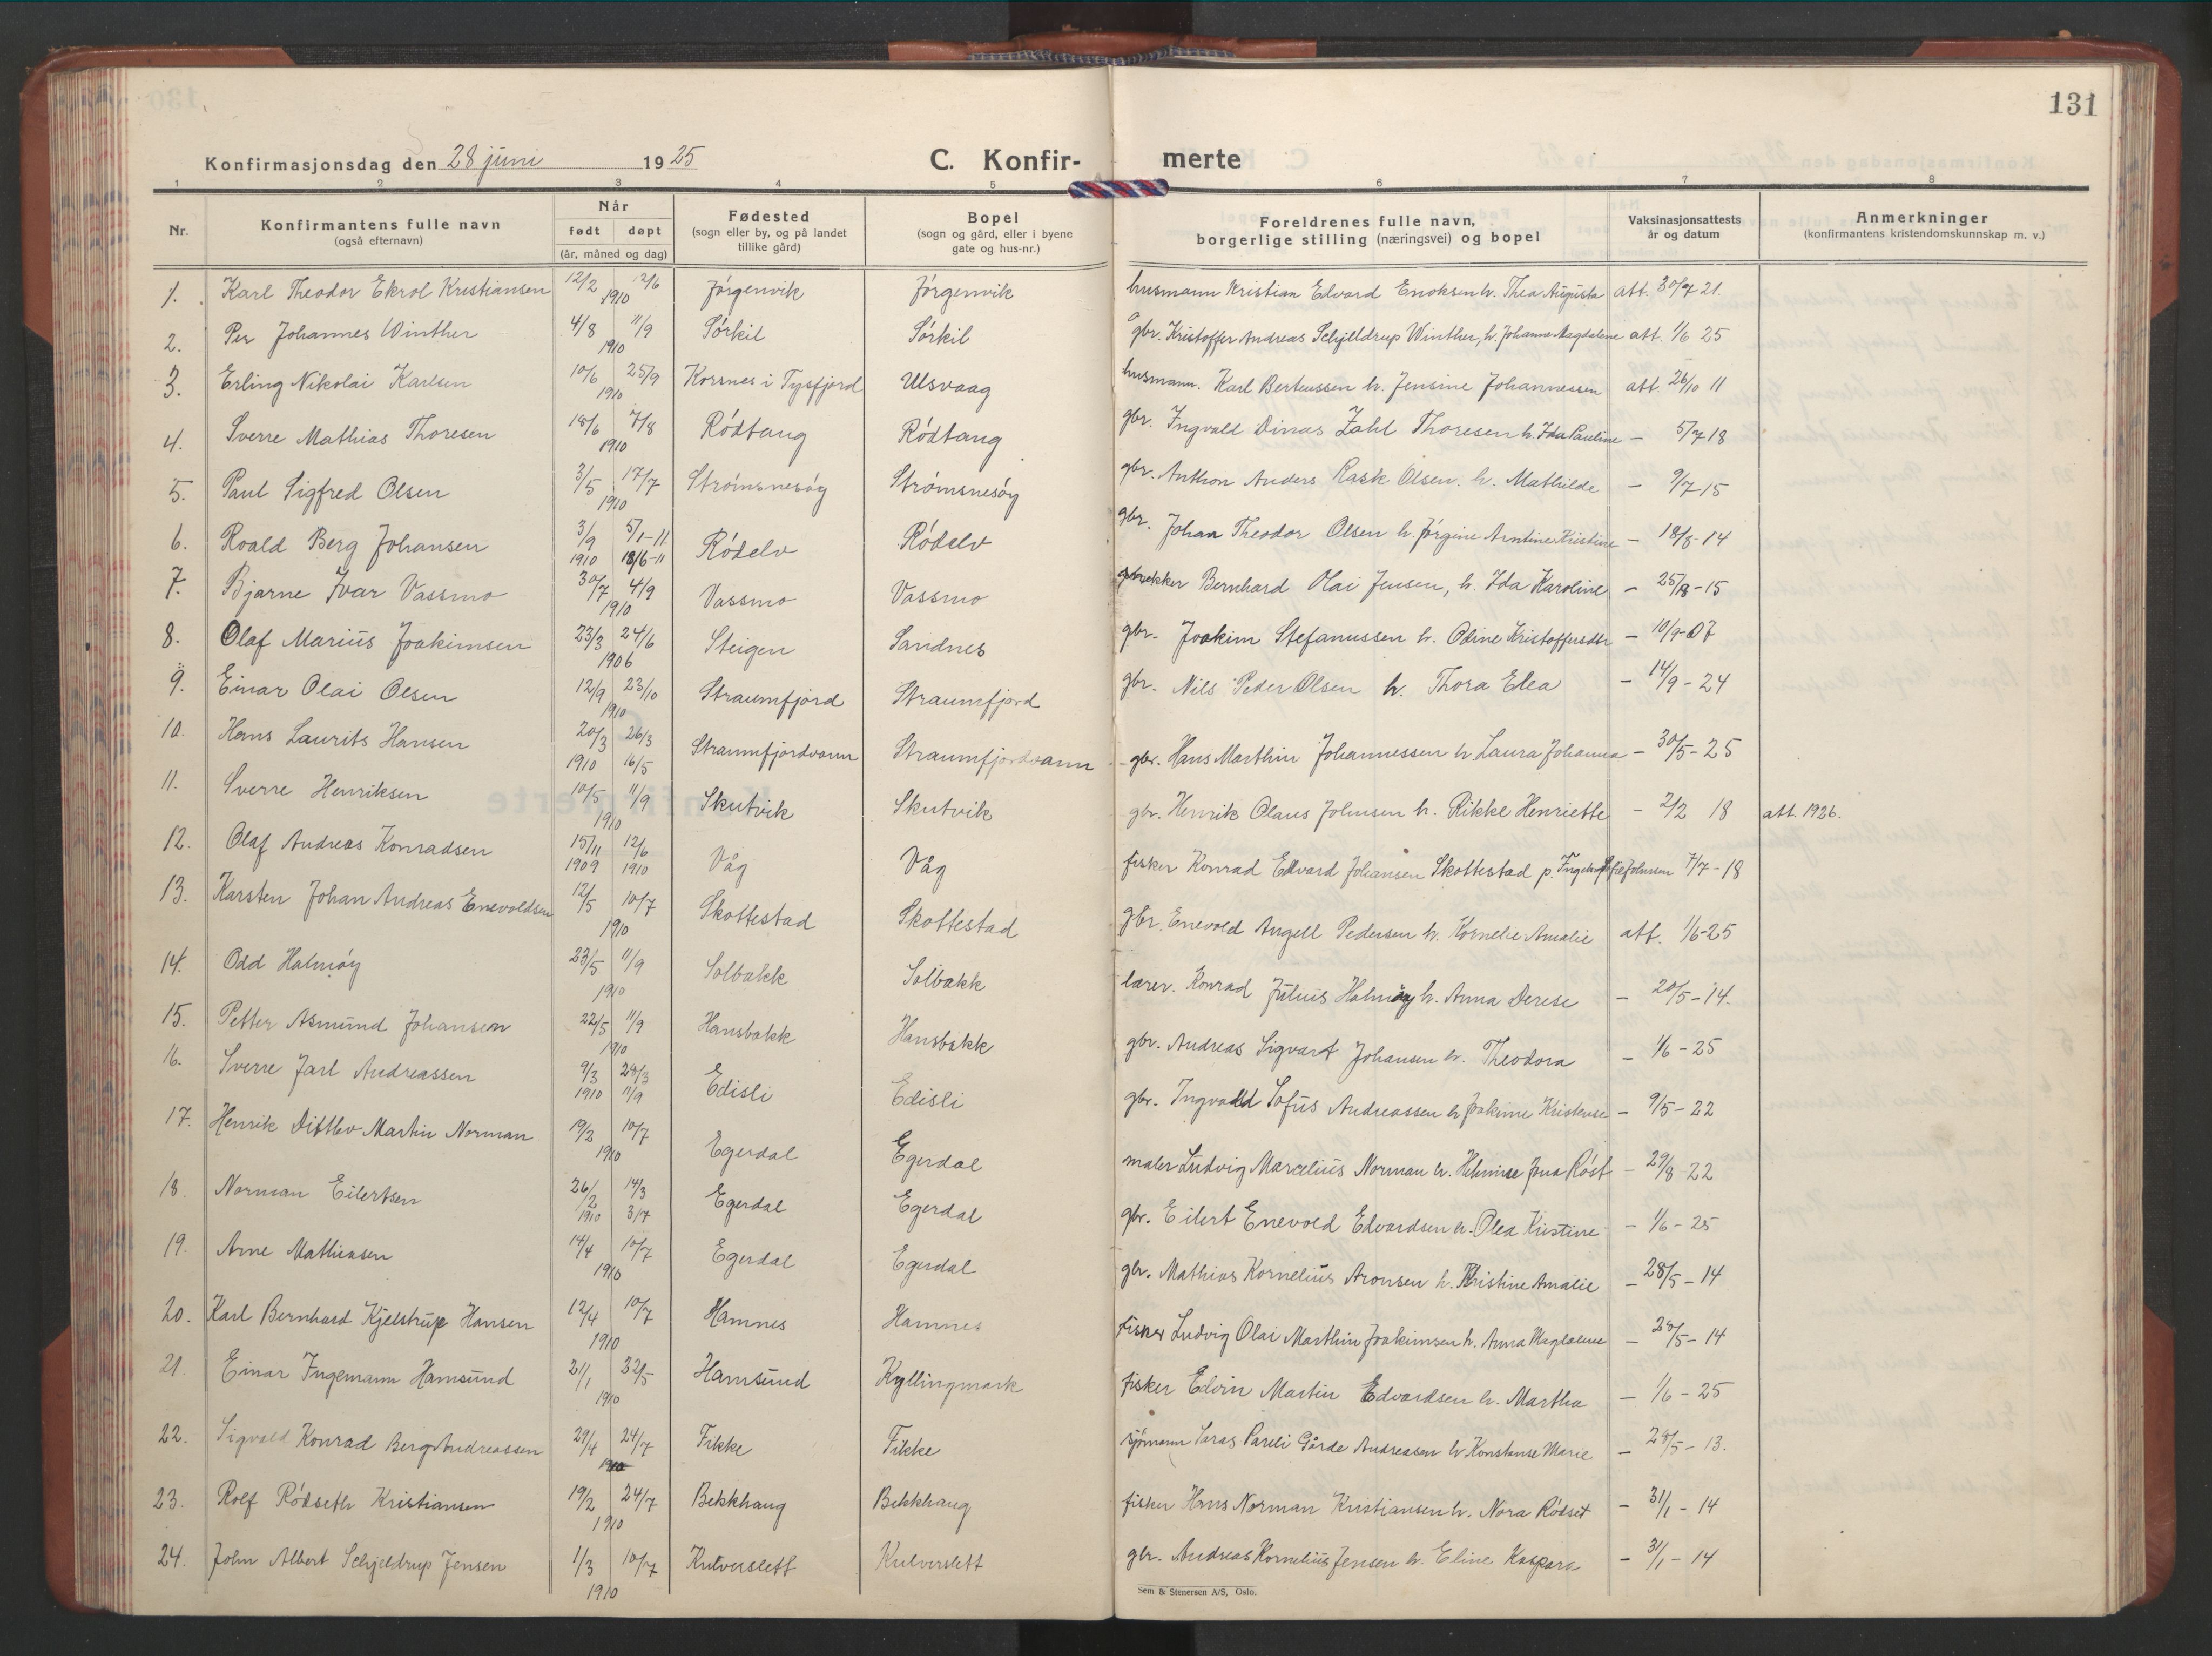 131
Konfirmasjonsdag den 28 juni 1925 C. Konfir- merte
1 2 3 4 5 6 7 8
Nr. Konfirmantens fulle navn (også efternavn) Når født døpt (år, måned og dag) Fødested (sogn eller by, og på landet tillike gård) Bopel (sogn og gård, eller i byene gate og hus-nr.) Foreldrenes fulle navn, borgerlige stilling (næringsvei) og bopel Vaksinasjonsattests år og datum Anmerkninger (konfirmantens kristendomskunnskap m. v.)
1. Karl Theodor Ekrol Kristiansen 12/2 12/6 1910 Jørgenvik Jørgenvik husmann Kristian Edvard Enoksen h. Thea Augusta att. 30/7 21.
2. Per Johannes Winther 4/8 11/9 1910 Sørkil Sørkil gbr. Kristoffer Andreas Schjelldrup Winther, h. Johanna Magdalene att. 1/6 25
3. Erling Nikolai Karlsen 10/6 25/9 1910 Korsnes i Tysfjord Ulsvaag husmann. Karl Berteussen h. Jensine Johannessen att. 26/10 11
4. Sverre Mathias Thoresen 18/6 7/8 1910 Rødtang Rødtang gbr. Ingvald Dinas Zahl Thoresen h. Ida Pauline — 5/7 18
5. Paul Sigfred Olsen 3/5 17/7 1910 Strømsnesøy Strømsnesøy gbr. Anthon Anders Rask Olsen. h. Mathilde — 9/7 15
6. Roald Berg Johansen 3/9 5/1-11 1910 18/6-11 Rødelv Rødelv gbr. Johan Theodor Olsen h. Jørgine Arntine Kristine — 18/8 14
7. Bjarne Ivar Vassmo 30/7 4/9 1910 Vassmo Vassmo Bernhard Olai Jensen, h. Ida Karoline — 25/8-15
8. Olaf Marius Joakimsen 23/3 24/6 1906 Steigen Sandnes gbr. Joakim Stefanussen h. Odine Kristoffersdtr — 10/9-07
9. Einar Olai Olsen 12/9 23/10 1910 Straumfjord Straumfjord gbr. Nils Peder Olsen h. Thora Elea — 14/9-24
10. Hans Laurits Hansen 20/3 26/3 1910 16/5 Straumfjordvann Straumfjordvann gbr. Hans Marthin Johannessen h Laura Johanna — 30/5-25
11. Sverre Henriksen 10/5 11/9 1910 Skutvik Skutvik gbr. Henrik Olaus Johnsen h. Rikke Henriette — 2/2 18 att. 1926.
12. Olaf Andreas Konradsen 15/11 12/6 1909 1910 Våg Våg fisker Konrad Edvard Johansen Skottestad p. Johnsen 7/7-18
13. Karsten Johan Andreas Enevoldsen 12/5 10/7 1910 Skottestad Skottestad gbr. Enevold Angell Pedersen h. Kornelie Amalie att. 1/6-25
14. Odd Halmøy 23/5 11/9 1910 Solbakk Solbakk lærer. Konrad Julius Halmøy h. Anna Derese — 20/5-14.
15. Petter Asmund Johansen 22/5 11/9 1910 Hansbakk Hansbakk gbr. Andreas Sigvart Johansen h. Theodora — 1/6-25
16. Sverre Jarl Andreassen 9/3 29/3 1910 11/9 Edisli Edisli gbr. Ingvald Sofus Andreassen h Joakime Kristense — 9/5-22
17. Henrik Ditlev Martin Norman 19/2 10/7 1910 Egerdal Egerdal maler Ludvig Marcelius Norman h. Helmine Jona Røst — 29/8 22
18. Norman Eilertsen 26/2 14/3 1910 3/7 Egerdal Egerdal gbr. Eilert Enevold Edvardsen h. Olea Kristine — 1/6-25
19. Arne Mathiasen 14/4 10/7 1910 Egerdal Egerdal gbr. Mathias Kornelius Aronsen h. Kristine Amalie — 28/5-14
20. Karl Bernhard Kjelstrup Hansen 12/4 10/7 1910 Hamnes Hamnes fisker Ludvig Olai Marthin Joakimsen h. Anna Magdalene — 28/5-14
21. Einar Ingemann Hamsund 21/1 32/5 1910 Hamsund Kyllingmark fisker Edvin Martin Edvardsen h. Martha — 1/6-25
22. Sigvald Konrad Berg Andreassen 29/4 24/7 1910 Fikke Fikke sjømann Laras Pareli Gårde Andreasen h Konstanse Marie — 28/5-13.
23. Rolf Rødseth Kristiansen 19/2 24/7 1910 Bekkhaug Bekkhaug fisker Hans Norman Kristiansen h. Nora Rødset — 31/1-14
24. John Albert Schjeldrup Jensen 1/3 10/7 1910 Kulverslett Kulverslett gbr. Andreas Kornelius Jensen h. Eline Kaspara — 31/1-14
Sem & Stenersen A/S, Oslo.